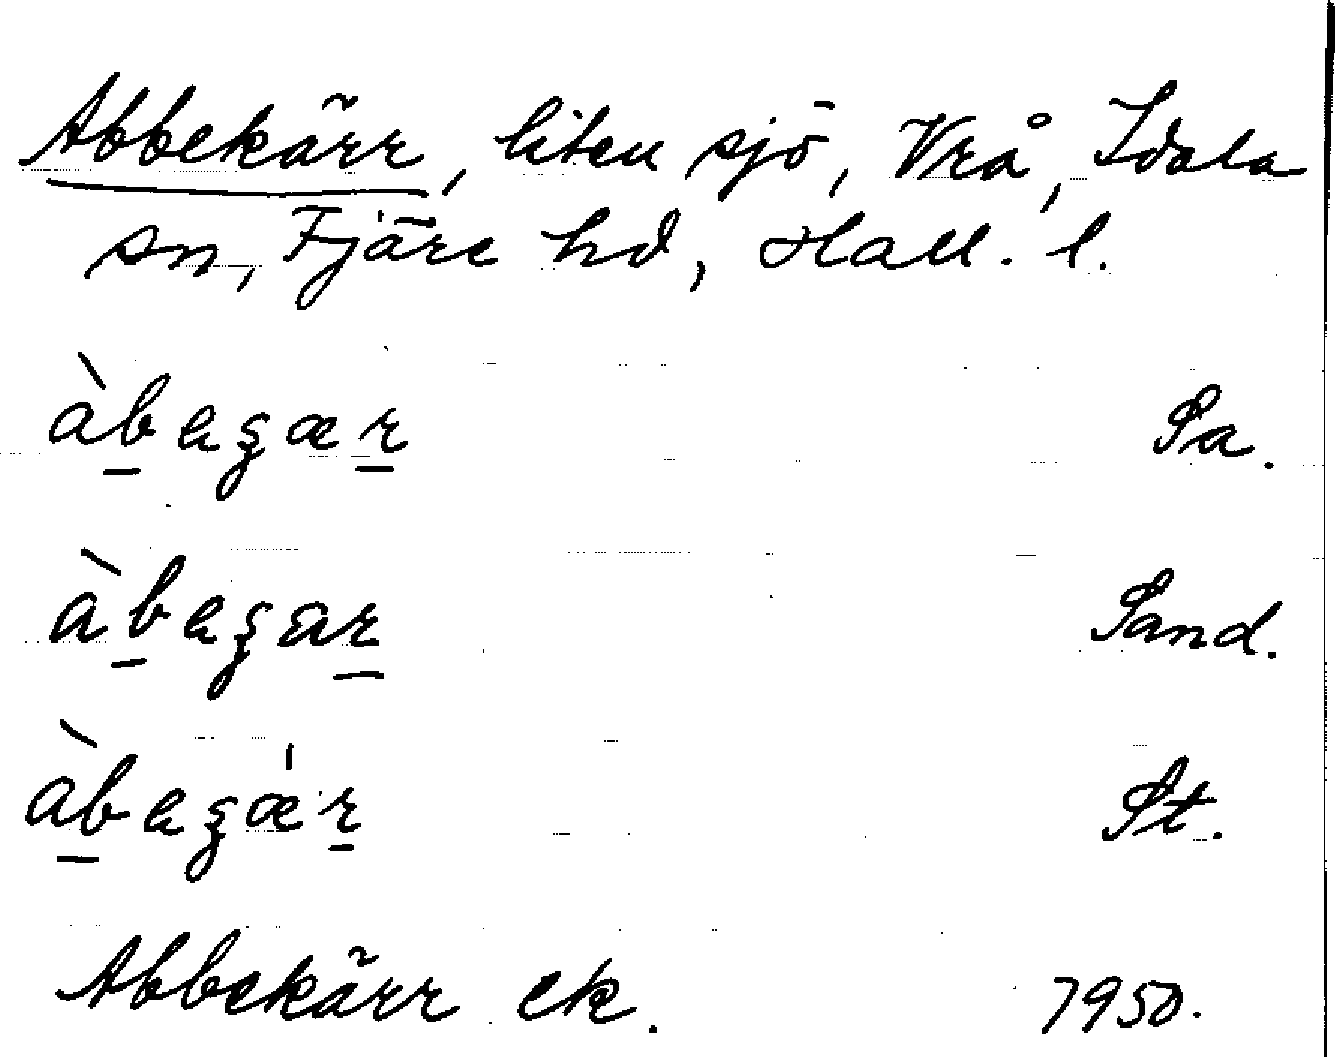 Abbekärr, liten sjö, Vrå, Idala
sn, Fjäre hd, Hall. l.
àb̲egær̲ Sa.
àb̲egar̲ Sand.
àb̲egǽr̲ St.
Abbekärr ek. 1950.